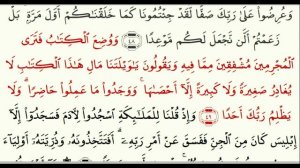 وَعُرِضُوا۟ عَلَىٰ رَبِّكَ صَفًّا لَّقَدْ جِئْتُمُونَا كَمَا خَلَقْنَٰكُمْ أَوَّلَ مَرَّةٍۭ ۚ بَلْ
زَعَمْتُمْ أَلَّن نَّجْعَلَ لَكُم مَّوْعِدًا ٤٨ وَوُضِعَ ٱلْكِتَٰبُ فَتَرَى
ٱلْمُجْرِمِينَ مُشْفِقِينَ مِمَّا فِيهِ وَيَقُولُونَ يَٰوَيْلَتَنَا مَالِ هَٰذَا ٱلْكِتَٰبِ لَا
يُغَادِرُ صَغِيرَةً وَلَا كَبِيرَةً إِلَّآ أَحْصَىٰهَا ۚ وَوَجَدُوا۟ مَا عَمِلُوا۟ حَاضِرًا ۗ وَلَا
يَظْلِمُ رَبُّكَ أَحَدًا ٤٩ وَإِذْ قُلْنَا لِلْمَلَٰٓئِكَةِ ٱسْجُدُوا۟ لِءَادَمَ فَسَجَدُوٓا۟ إِلَّآ
إِبْلِيسَ كَانَ مِنَ ٱلْجِنِّ فَفَسَقَ عَنْ أَمْرِ رَبِّهِۦٓ ۗ أَفَتَتَّخِذُونَهُۥ وَذُرِّيَّتَهُۥٓ أَوْلِيَآءَ